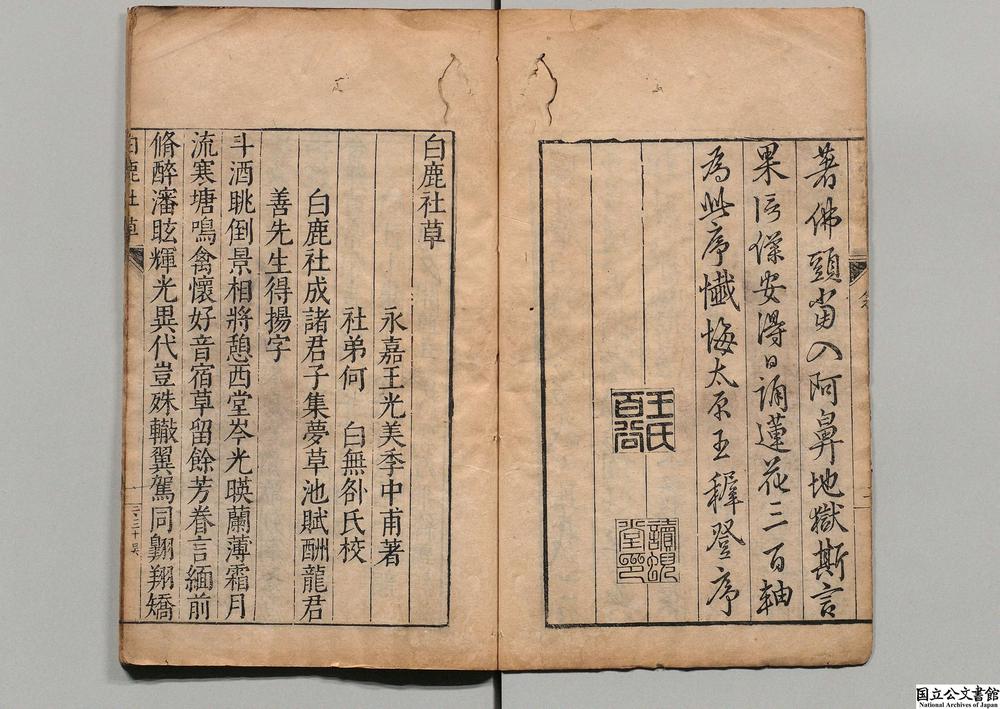 著佛頭當入阿鼻地獄斯言
果信僕安得日誦蓮花三百軸
為此序懺悔太原王穉登序
王氏百穀
白鹿社草
永嘉王光美季中甫著
社弟何　白無咎氏校
白鹿社成諸君子集夢草池賦酬龍君
善先生得揚字
斗酒眺倒景相將憩西堂岑光暎蘭薄霜月
流寒塘鳴禽懷好音宿草留餘芳眷言緬前
脩醉瀋眩輝光異代豈殊轍翼駕同翺翔矯
白鹿社草
国立公文書館
National Archives of Japan